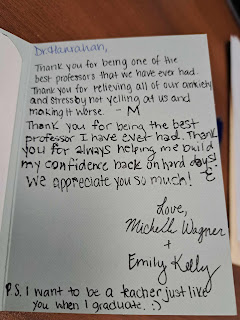 Dr. Hanrahan,
Thank you for being one of the
best professors that we have ever had.
Thank you for relieving all of our anxiety
and stress by not yelling at us and
making it worse. - M
Thank you for being the best
professor I have ever had. Thank
you for always helping me build
my confidence back on hard days!
We appreciate you so much! - E
Love,
Michell Wagner
+
Emily Kelly
P.S. I want to be a teacher just like
you when I graduate. :)